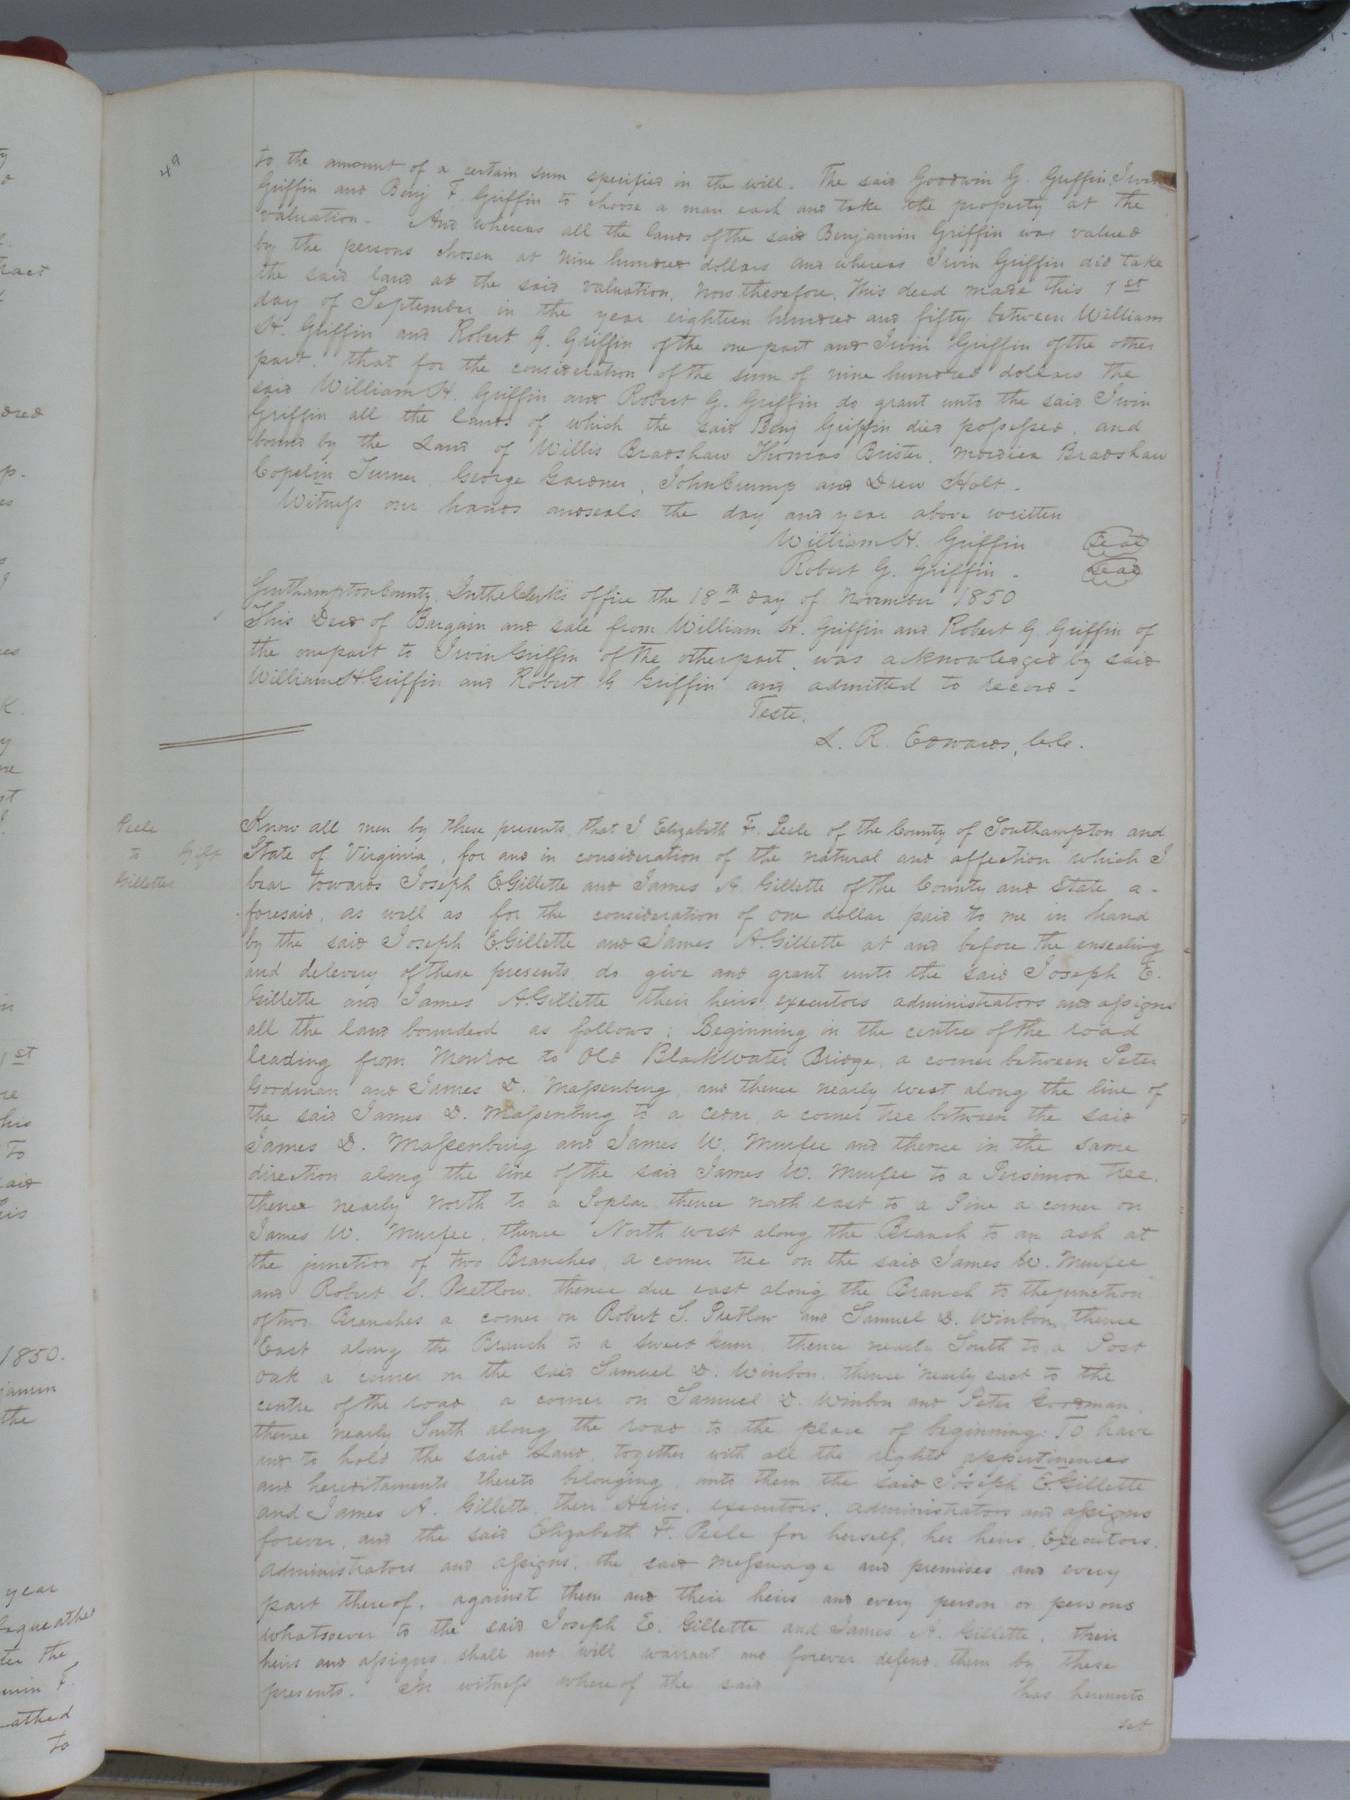 49
to the amount of a certain sum specified in the will. The said Goodwin G. Griffin, Irvin
Griffin and Benj F. Griffin to choose a man each and take the property at the
valuation - And whereas all the lands of the said Benjamin Griffin was valued
by the persons chosen at nine hundred dollars and whereas Irvin Griffin did take
the said land at the said valuation, now therefore, This deed made this 1st
day of September in the year eighteen hundred and fifty between William
H. Griffin and Robert G. Griffin of the one part and Irvin Griffin of the other
part, that for the consideration of the sum of nine hundred dollars the
said William H. Griffin and Robert G. Griffin do grant unto the said Irvin
Griffin all the lands of which the said Benj Griffin died possessed, and
bound by the Land of Willis Bradshaw Thomas Brister, Bradshaw
Copelin Turner, George Gardner, John Crump and Drew Holt -
Witness our hands and seals the day and year above written
William H. Griffin seal
Robert G. Griffin - seal
Southampton County, In the Clerk's office the 18th day of November 1850
This Deed of Bargain and sale from William H. Griffin and Robert G Griffin of
the one part to Irvin Griffin of the other part, was acknowledged by said
William H Griffin and Robert G Griffin and admitted to record -
Teste,
L. R. Edwards, C.C.
Peele
to Gift
Gillettes
Know all men by these presents, that I Elizabeth F. Peele of the County of Southampton and
State of Virginia, for and in consideration of the natural and affection which I
bear towards Joseph E Gillette and James A Gillette of the County and State a-
foresaid, as well as for the consideration of one dollar paid to me in hand
by the said Joseph E. Gillette and James A. Gillette at and before the ensealing
and delevery of these presents do give and grant unto the said Joseph E.
Gillette and James A. Gillette their heirs, executors administrators and assigns
all the land bounded as follows; Beginning in the centre of the road
leading from Monroe to Old BlackWater Bridge, a corner between Peter
Goodman and James D. Massenburg and thence nearly west along the line of
the said James D. Massenburg to a cedar a corner tree between the said
James D. Massenburg and James W. Murfee and thence in the same
direction along the line of the said James W. Murfee to a Persimon tree,
thence nearly North to a Poplar thence north east to a Pine a corner on
James W. Murfee, thence North west along the Branch to an ash at
the junction of two Branches, a corner tree on the said James W. Murfee
and Robert S. Pretlow thence due east along the Branch to the junction
of two Branches a corner on Robert S. Pretlow and Samuel D. Winbon, thence
East along the Branch to a sweet Gum thence nearly South to a Post
oak a corner on the said Samuel D. Winbon thence nearly east to the
centre of the road, a corner on Samuel D. Winbon and Peter Goodman,
thence nearly South along the road to the place of beginning. To have
and to hold the said Land, together with all the rights appurtinences
and hereditaments thereto belonging unto them the said Joseph E. Gillette
and James A. Gillette, their Heirs, executors, administrators and assigns
forever, and the said Elizabeth F. Peele for herself, her heirs, Executors,
administrators and assigns, the said Messuage and premises and every
part thereof, against them and their heirs and every person or persons
whatsoever to the said Joseph E. Gillette and James A. Gillette, their
heirs and assigns shall and will warrant and forever defend them by these
presents. In witness whereof the said has hereunto
set